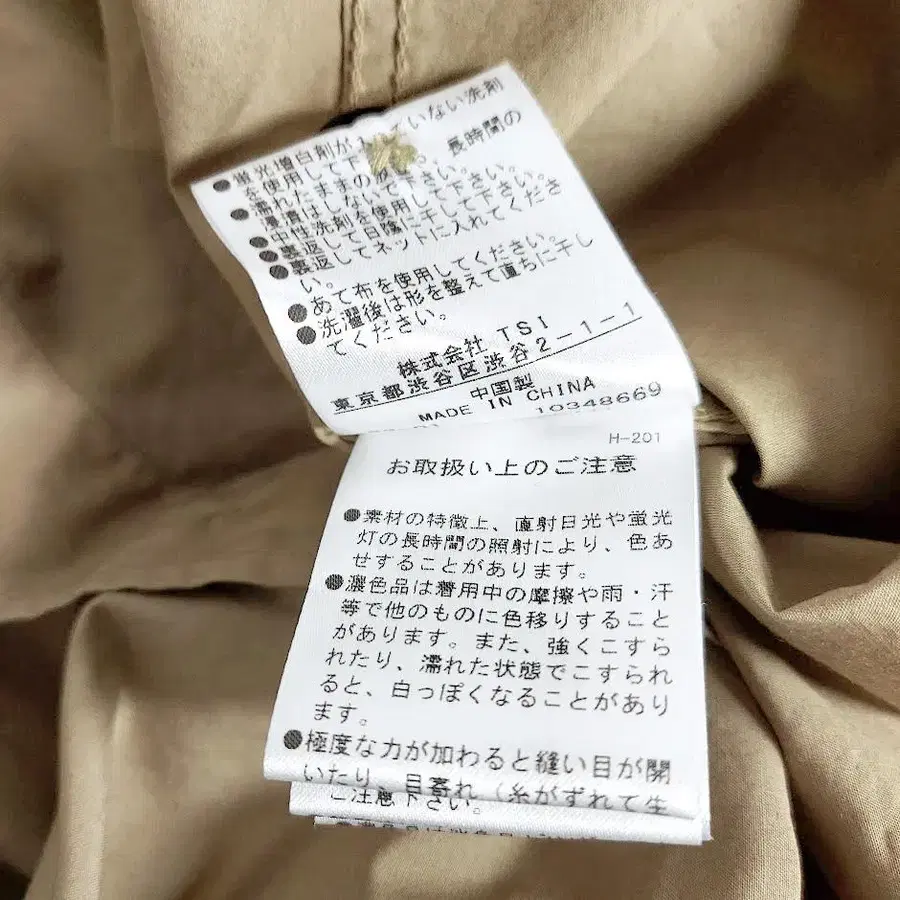 ●蛍光増白剤が入っていない洗剤
を使用して下さい。
●濡れたままの放置 長時間の
浸漬はしないで下さい。
●中性洗剤を使用して下さい。
●裏返して日陰に干して下さい。
●裏返してネットに入れてくださ
い。
●あて布を使用してください。
●洗濯後は形を整えて直ちに干し
てください。
株式会社 TSI
東京都渋谷区渋谷2-1-1
中国製
MADE IN CHINA
10348669
H-201
お取扱い上のご注意
●素材の特徴上、直射日光や蛍光
灯の長時間の照射により、色あ
せすることがあります。
●濃色品は着用中の摩擦や雨・汗
等で他のものに色移りすること
があります。また、強くこすら
れたり、濡れた状態でこすられ
ると、白っぽくなることがあり
ます。
●極度な力が加わると縫い目が開
いたり、目寄れ（糸がずれて生
ご注意下さい。